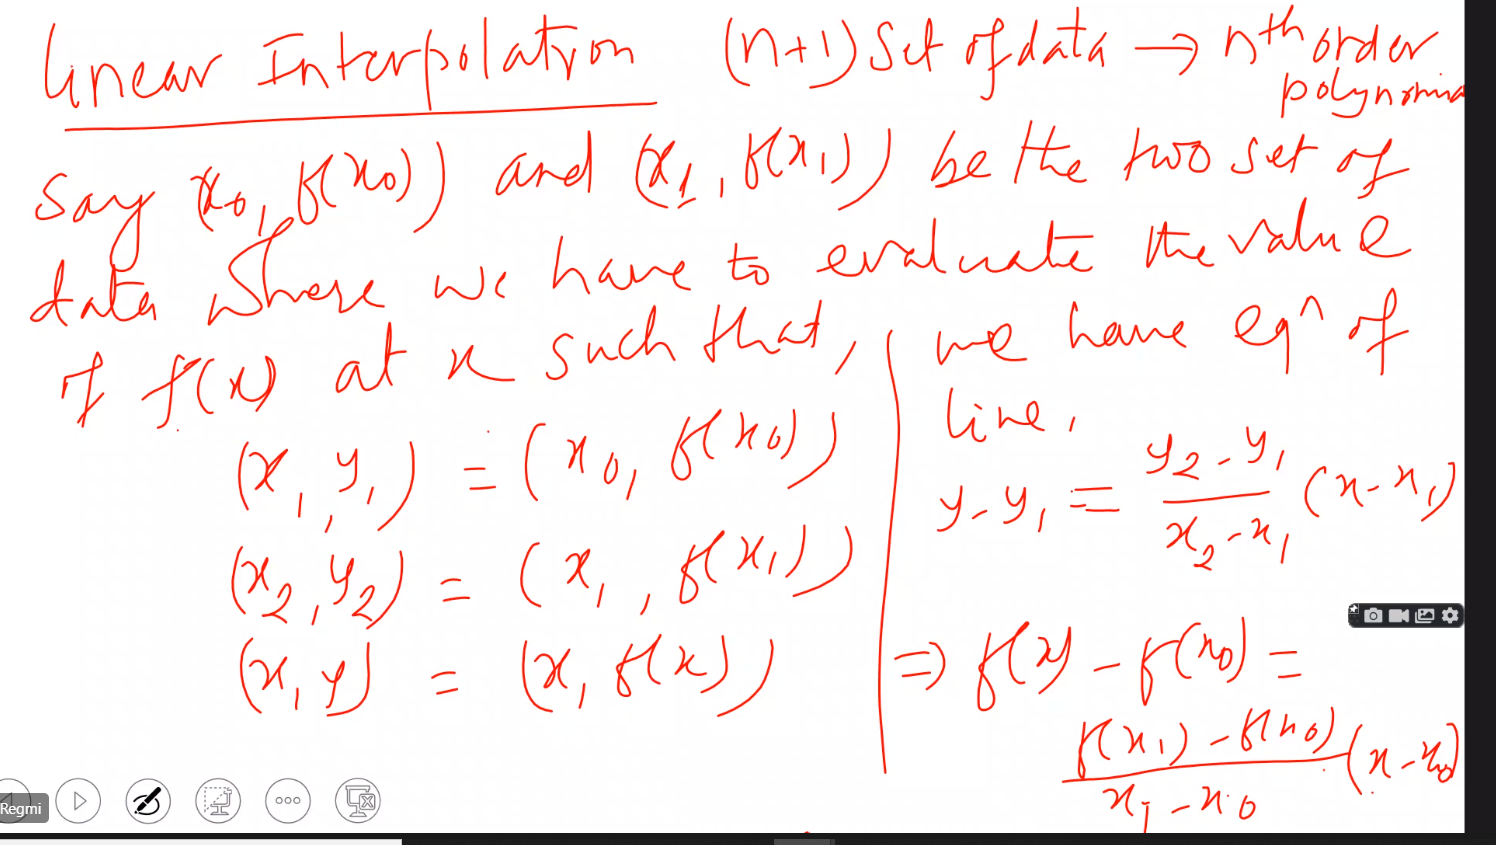 Linear Interpolation (n+1) set of data → nth order
polynomia
Say (x₀, f(x₀)) and (x₁, f(x₁)) be the two set of
data where we have to evaluate the value
of f(x) at x such that,
(x₁, y₁) = (x₀, f(x₀))
(x₂, y₂) = (x₁, f(x₁))
(x, y) = (x, f(x))
we have eqⁿ of
line,
y - y₁ = (y₂ - y₁)/(x₂ - x₁) (x - x₁)
⇒ f(x) - f(x₀) =
(f(x₁) - f(x₀))/(x₁ - x₀) (x - x₀)
Regmi